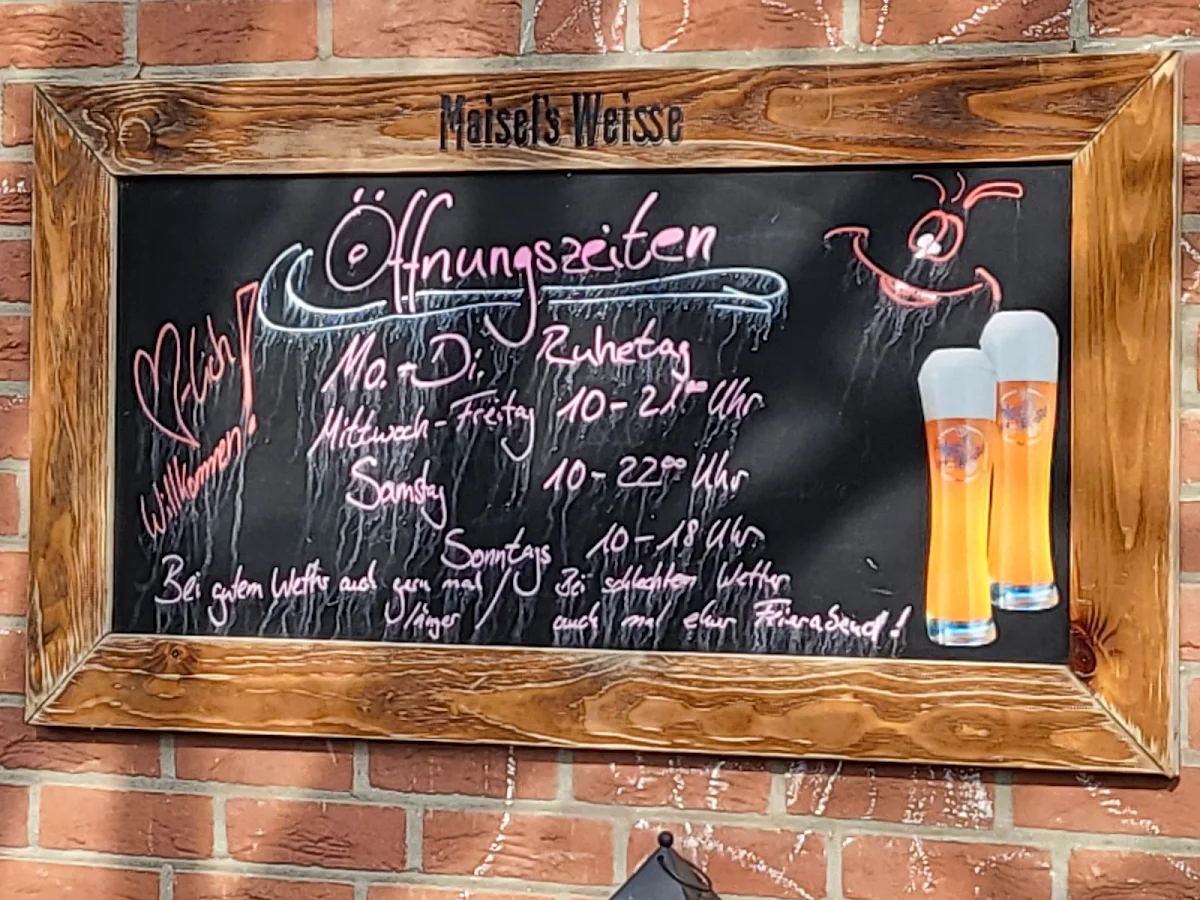 Maisel's Weisse
Öffnungszeiten
Mo. + Di. Ruhetag
Mittwoch - Freitag 10 - 21⁰⁰ Uhr
Samstag 10 - 22⁰⁰ Uhr
Sonntags 10 - 18 Uhr
♡-lich
Willkommen!
Bei gutem Wetter auch gern mal
länger /
Bei schlechten Wetter
auch mal eher Feierabend!